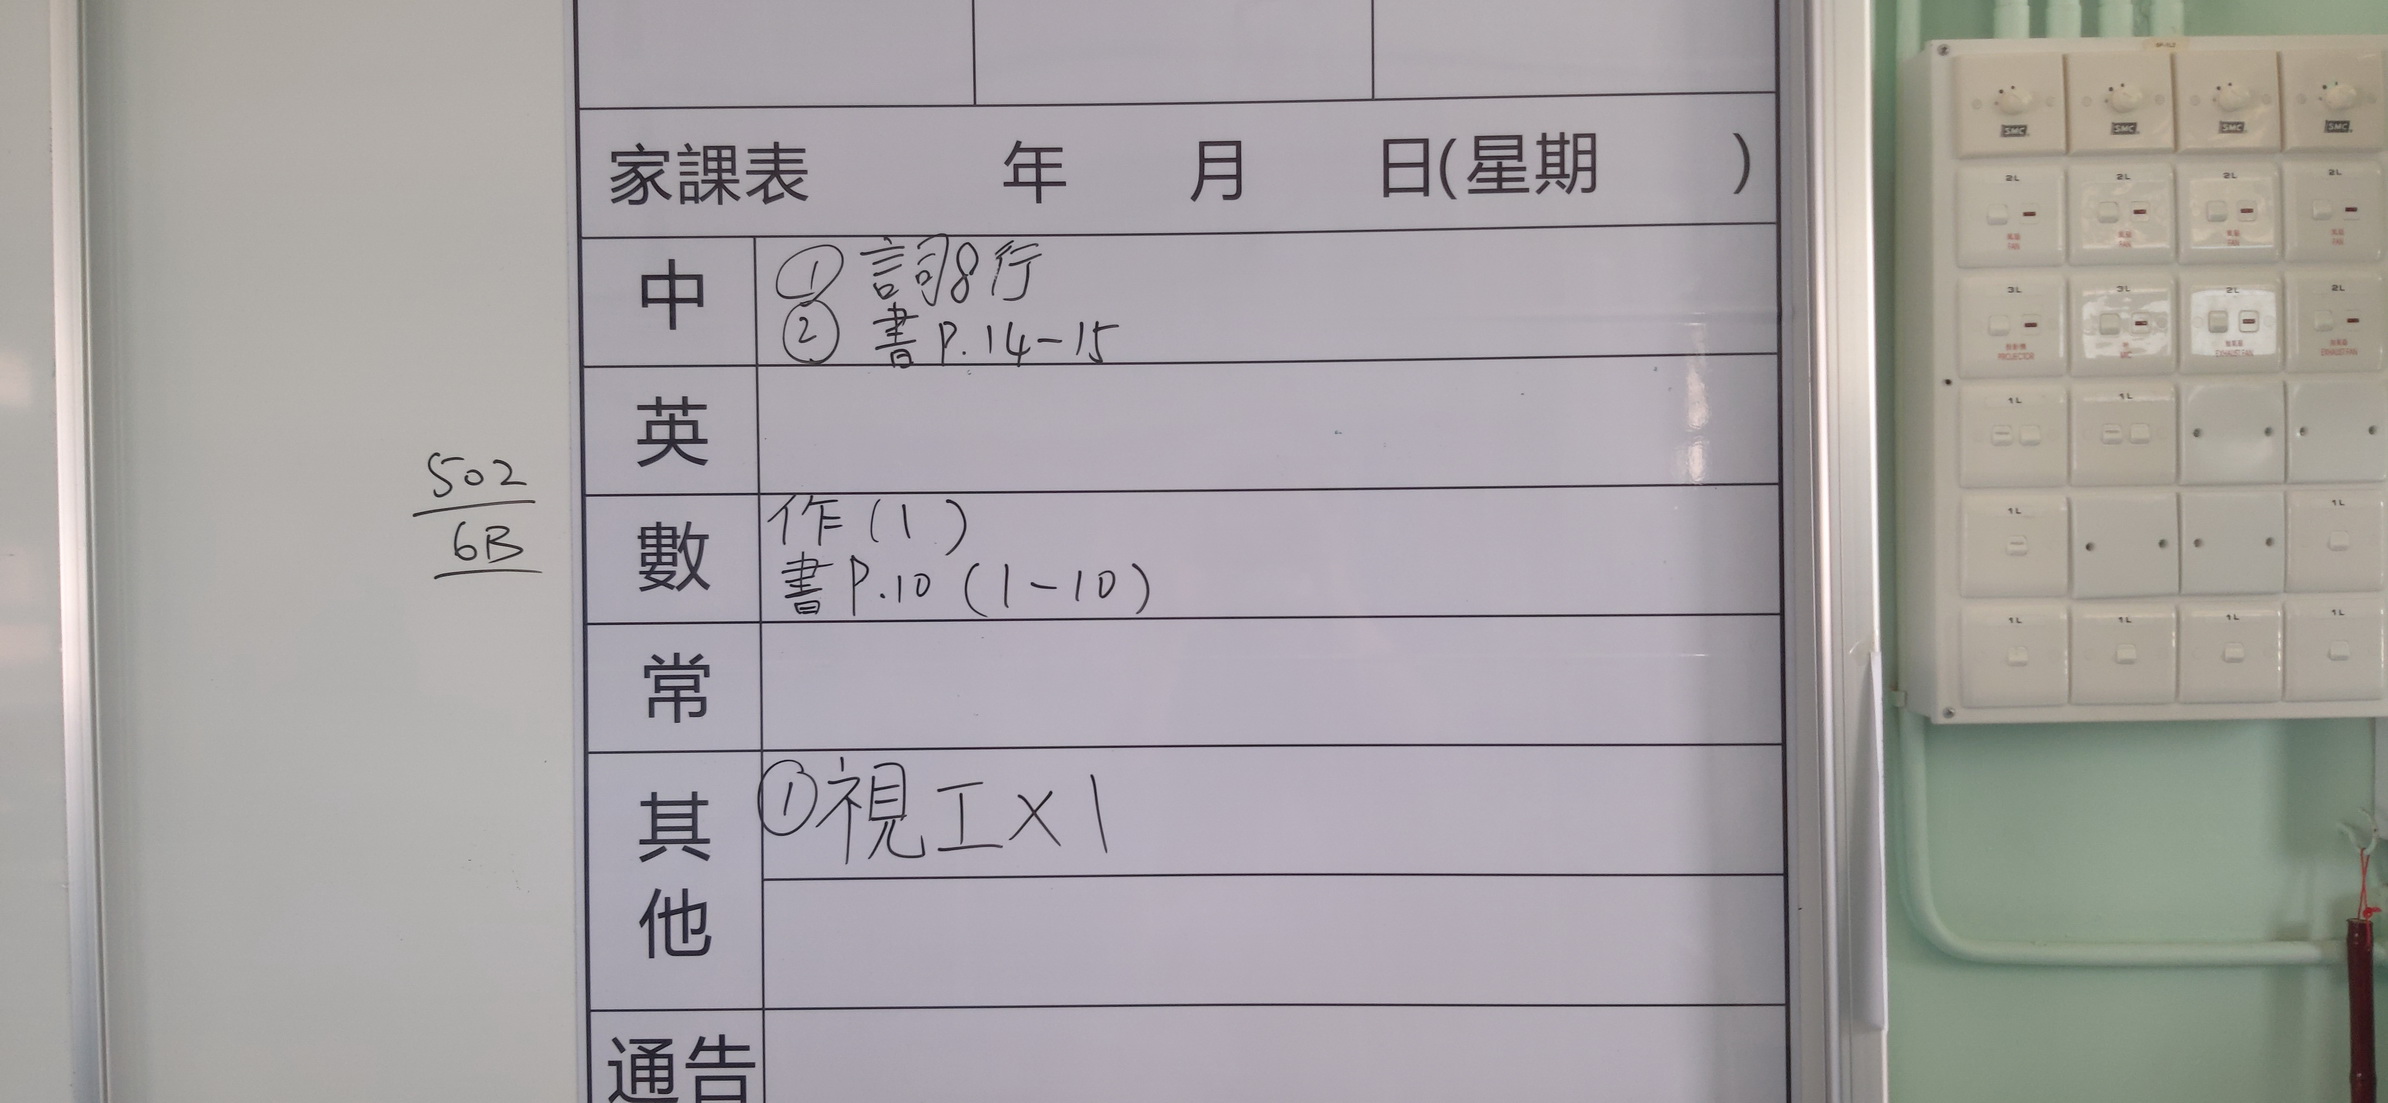 家課表 年 月 日(星期 )
中
① 詞8行
② 書 P.14-15
英
502
6B
數
作(1)
書 P.10 (1-10)
常
其他
① 視工×1
通告
SMC SMC SMC SMC
2L 2L 2L 2L
FAN FAN FAN FAN
3L 3L 2L 2L
PROJECTOR MIC EXHAUST FAN EXHAUST FAN
1L 1L
1L 1L
1L 1L 1L 1L